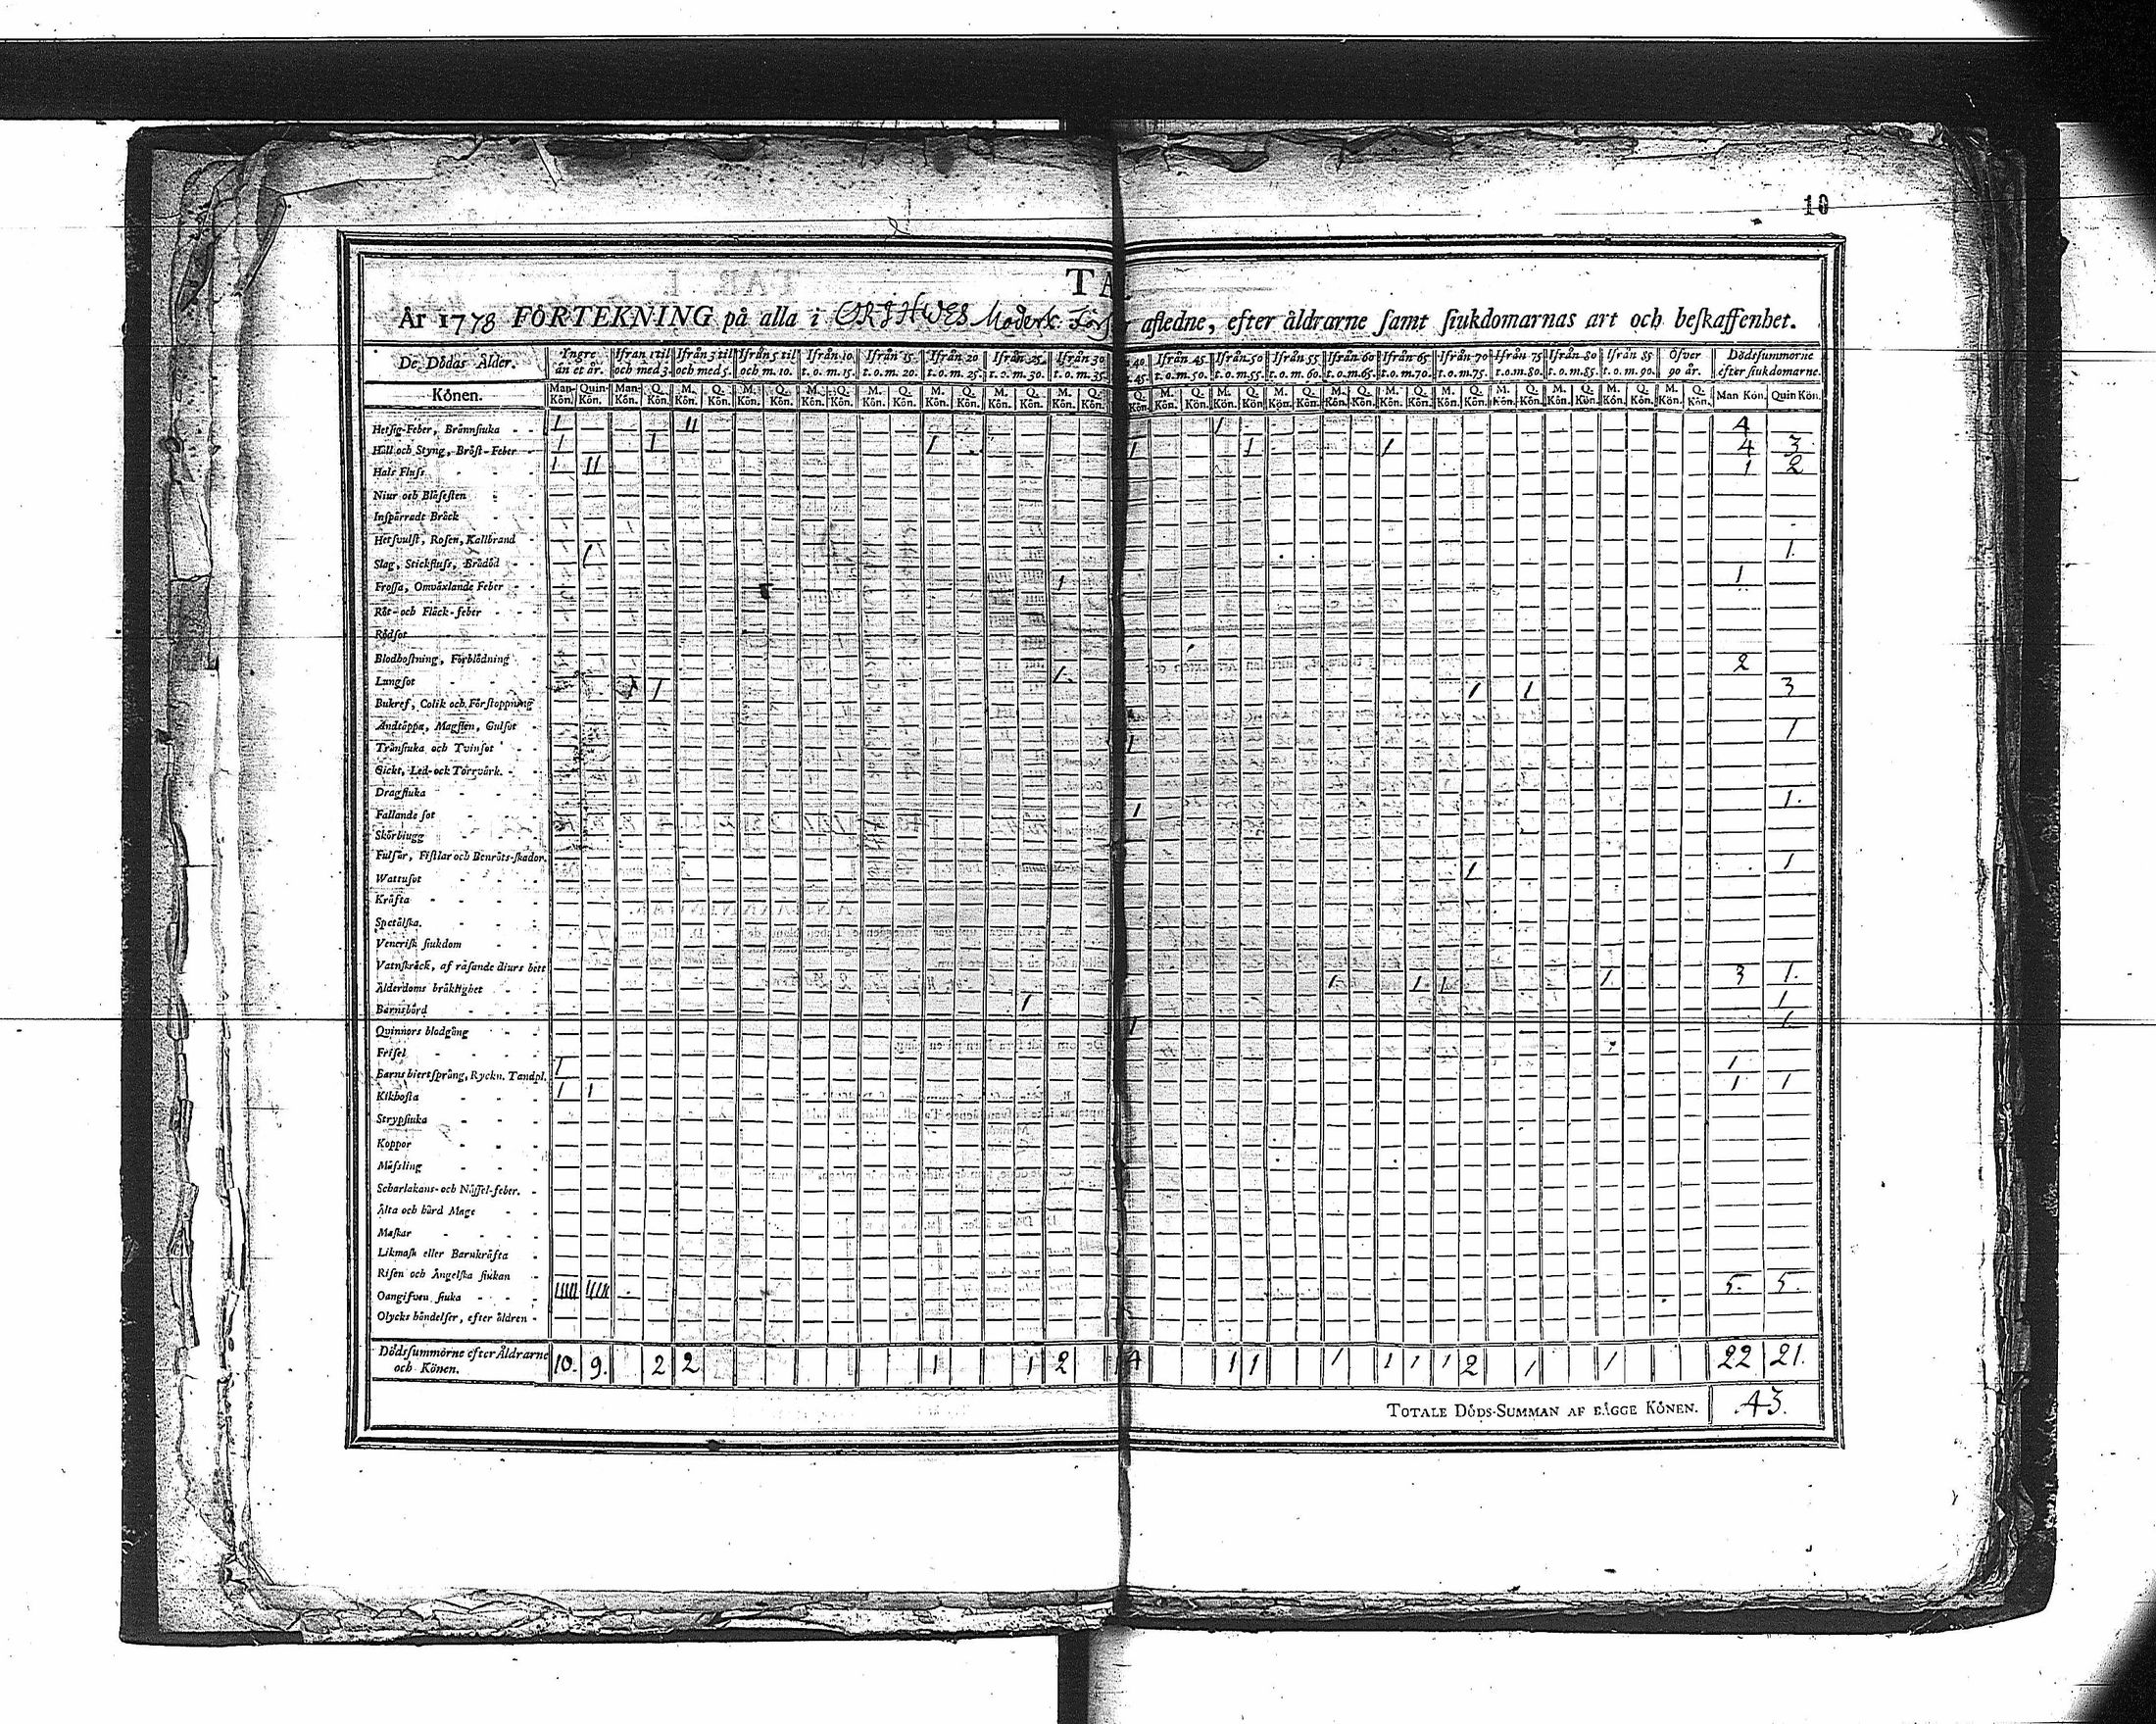 10
TA
År 1778 FÖRTEKNING på alla i Moderk: afledne, efter åldrarne samt siukdomarnas art och beskaffenhet.
De Dödas Ålder. Yngre än et år. Ifrån 1 til och med 3. Ifrån 3 til och med 5. Ifrån 5 til och m. 10. Ifrån 10. t. o. m. 15. Ifrån 15. t. o. m. 20. Ifrån 20 t. o. m. 25. Ifrån 25. t. o. m. 30. Ifrån 30 t. o. m. 35. 40 45. Ifrån 45. t. o. m. 50. Ifrån 50 t. o. m. 55. Ifrån 55 t. o. m. 60. Ifrån 60 t. o. m. 65. Ifrån 65. t. o. m. 70. Ifrån 70 t. o. m. 75. Ifrån 75 t. o. m. 80. Ifrån 80 t. o. m. 85. Ifrån 85 t. o. m. 90. Öfver 90 år. Dödssummorne efter siukdomarne.
Könen. Man-Kön. Quin-Kön. Man-Kön. Q. Kön. M. Kön. Q. Kön. M. Kön. Q. Kön. M. Kön. Q. Kön. M. Kön. Q. Kön. M. Kön. Q. Kön. M. Kön. Q. Kön. M. Kön. Q. Kön. Q. Kön. M. Kön. Q. Kön. M. Kön. Q. Kön. M. Kön. Q. Kön. M. Kön. Q. Kön. M. Kön. Q. Kön. M. Kön. Q. Kön. M. Kön. Q. Kön. M. Kön. Q. Kön. M. Kön. Q. Kön. M. Kön. Q. Kön. Man Kön. Quin Kön.
Hetsig-Feber, Brännsiuka 1 11 1 4
Håll och Styng, Bröst-Feber 1 1 1 1 1 1 4 3
Hals Fluss 1 11 1 2
Niur och Blåsesten
Inspärradt Bråck
Hetsvulst, Rosen, Kallbrand
Slag, Stickfluss, Brådöd 1 1.
Frossa, Omväxlande Feber 1 1
Röt- och Fläck-feber
Rödsot
Blodhostning, Förblödning
Lungsot 1 2
Bukref, Colik och Förstoppning 1 1 1 3
Andtäppa, Magsten, Gulsot
Trånsiuka och Tvinsot 1 1
Gickt, Led- ock Torrvärk.
Dragsiuka
Fallande sot 1 1.
Skörbiugg
Fulsår, Fistlar och Benröts-skador.
Wattusot 1 1
Kräfta
Spetälska.
Venerisk siukdom
Vatnskräck, af rasande diurs bett
Ålderdoms bräklighet 1. 1 1 1. 3 1.
Barnsbörd 1 1
Quinnors blodgång 1 1.
Frisel
Barns hiertsprång, Ryckn. Tandpl. 1 1
Kikhosta 1 1 1 1
Strypsiuka
Koppor
Mässling
Scharlakans- och Nässel-feber.
Älta och hård Mage
Maskar
Likmask eller Barnkräfta
Risen och Ängelska siukan
Oangifven siuka 11111 11111 5. 5.
Olycks händelser, efter åldren
Dödssummorne efter Åldrarne och Könen. 10. 9. 2 2 1 1 2 4 1 1 1 1 1 1 2 1 1 22 21.
TOTALE DÖDS-SUMMAN AF BÄGGE KÖNEN. 43.